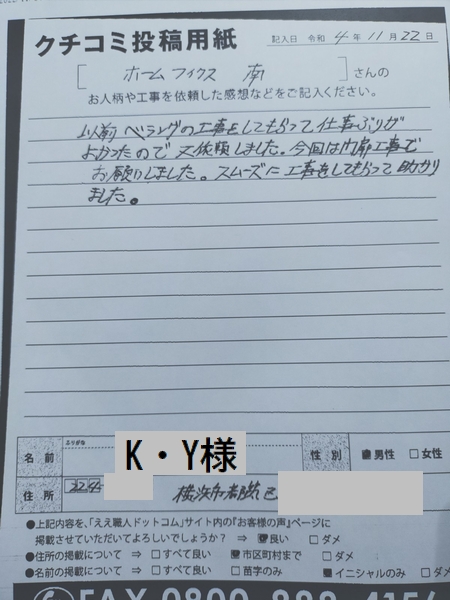 クチコミ投稿用紙
記入日 令和 4年 11月 22日
[ ホームフィクス 南 ]さんの
お人柄や工事を依頼した感想などをご記入ください。
以前ベランダの工事をしてもらって仕事ぶりが
よかったので又依頼しました。今回は内部工事で
お願いしました。スムーズに工事をしてもらって助かり
ました。
名前 ふりがな K・Y様 性別 ■男性 □女性
住所 224- 横浜市都筑区
●上記内容を、「ええ職人ドットコム」サイト内の『お客様の声』ページに
掲載させていただいてよろしいでしょうか? ⇒ ■良い □ダメ
●住所の掲載について ⇒ □すべて良い ■市区町村まで □ダメ
●名前の掲載について ⇒ □すべて良い □苗字のみ ■イニシャルのみ □ダメ
FAX 0800